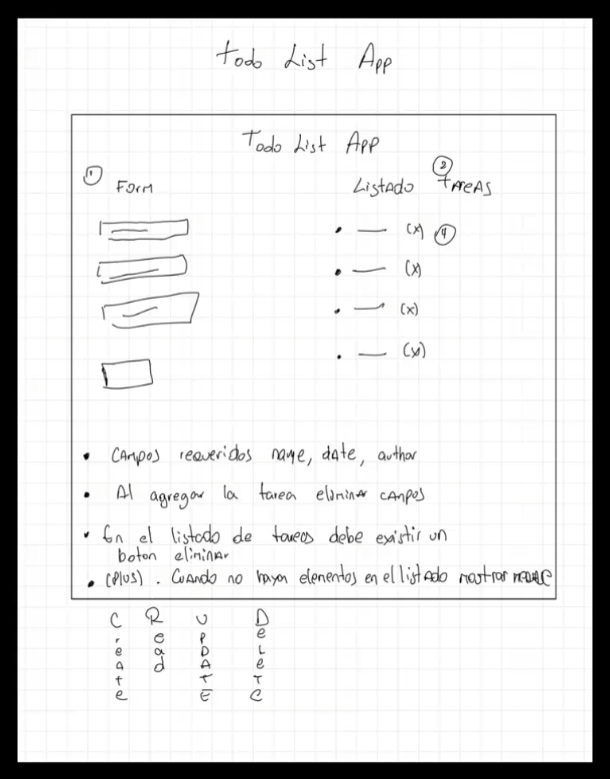 Todo List App
Todo List App
1 Form
Listado tareas
(x) 4
(x)
(x)
(x)
• Campos requeridos name, date, author
• Al agregar la tarea eliminar campos
• En el listado de tareas debe existir un
boton eliminar
• (Plus). Cuando no hayan elementos en el listado mostrar
Create
Read
UPDATE
DeLeTe